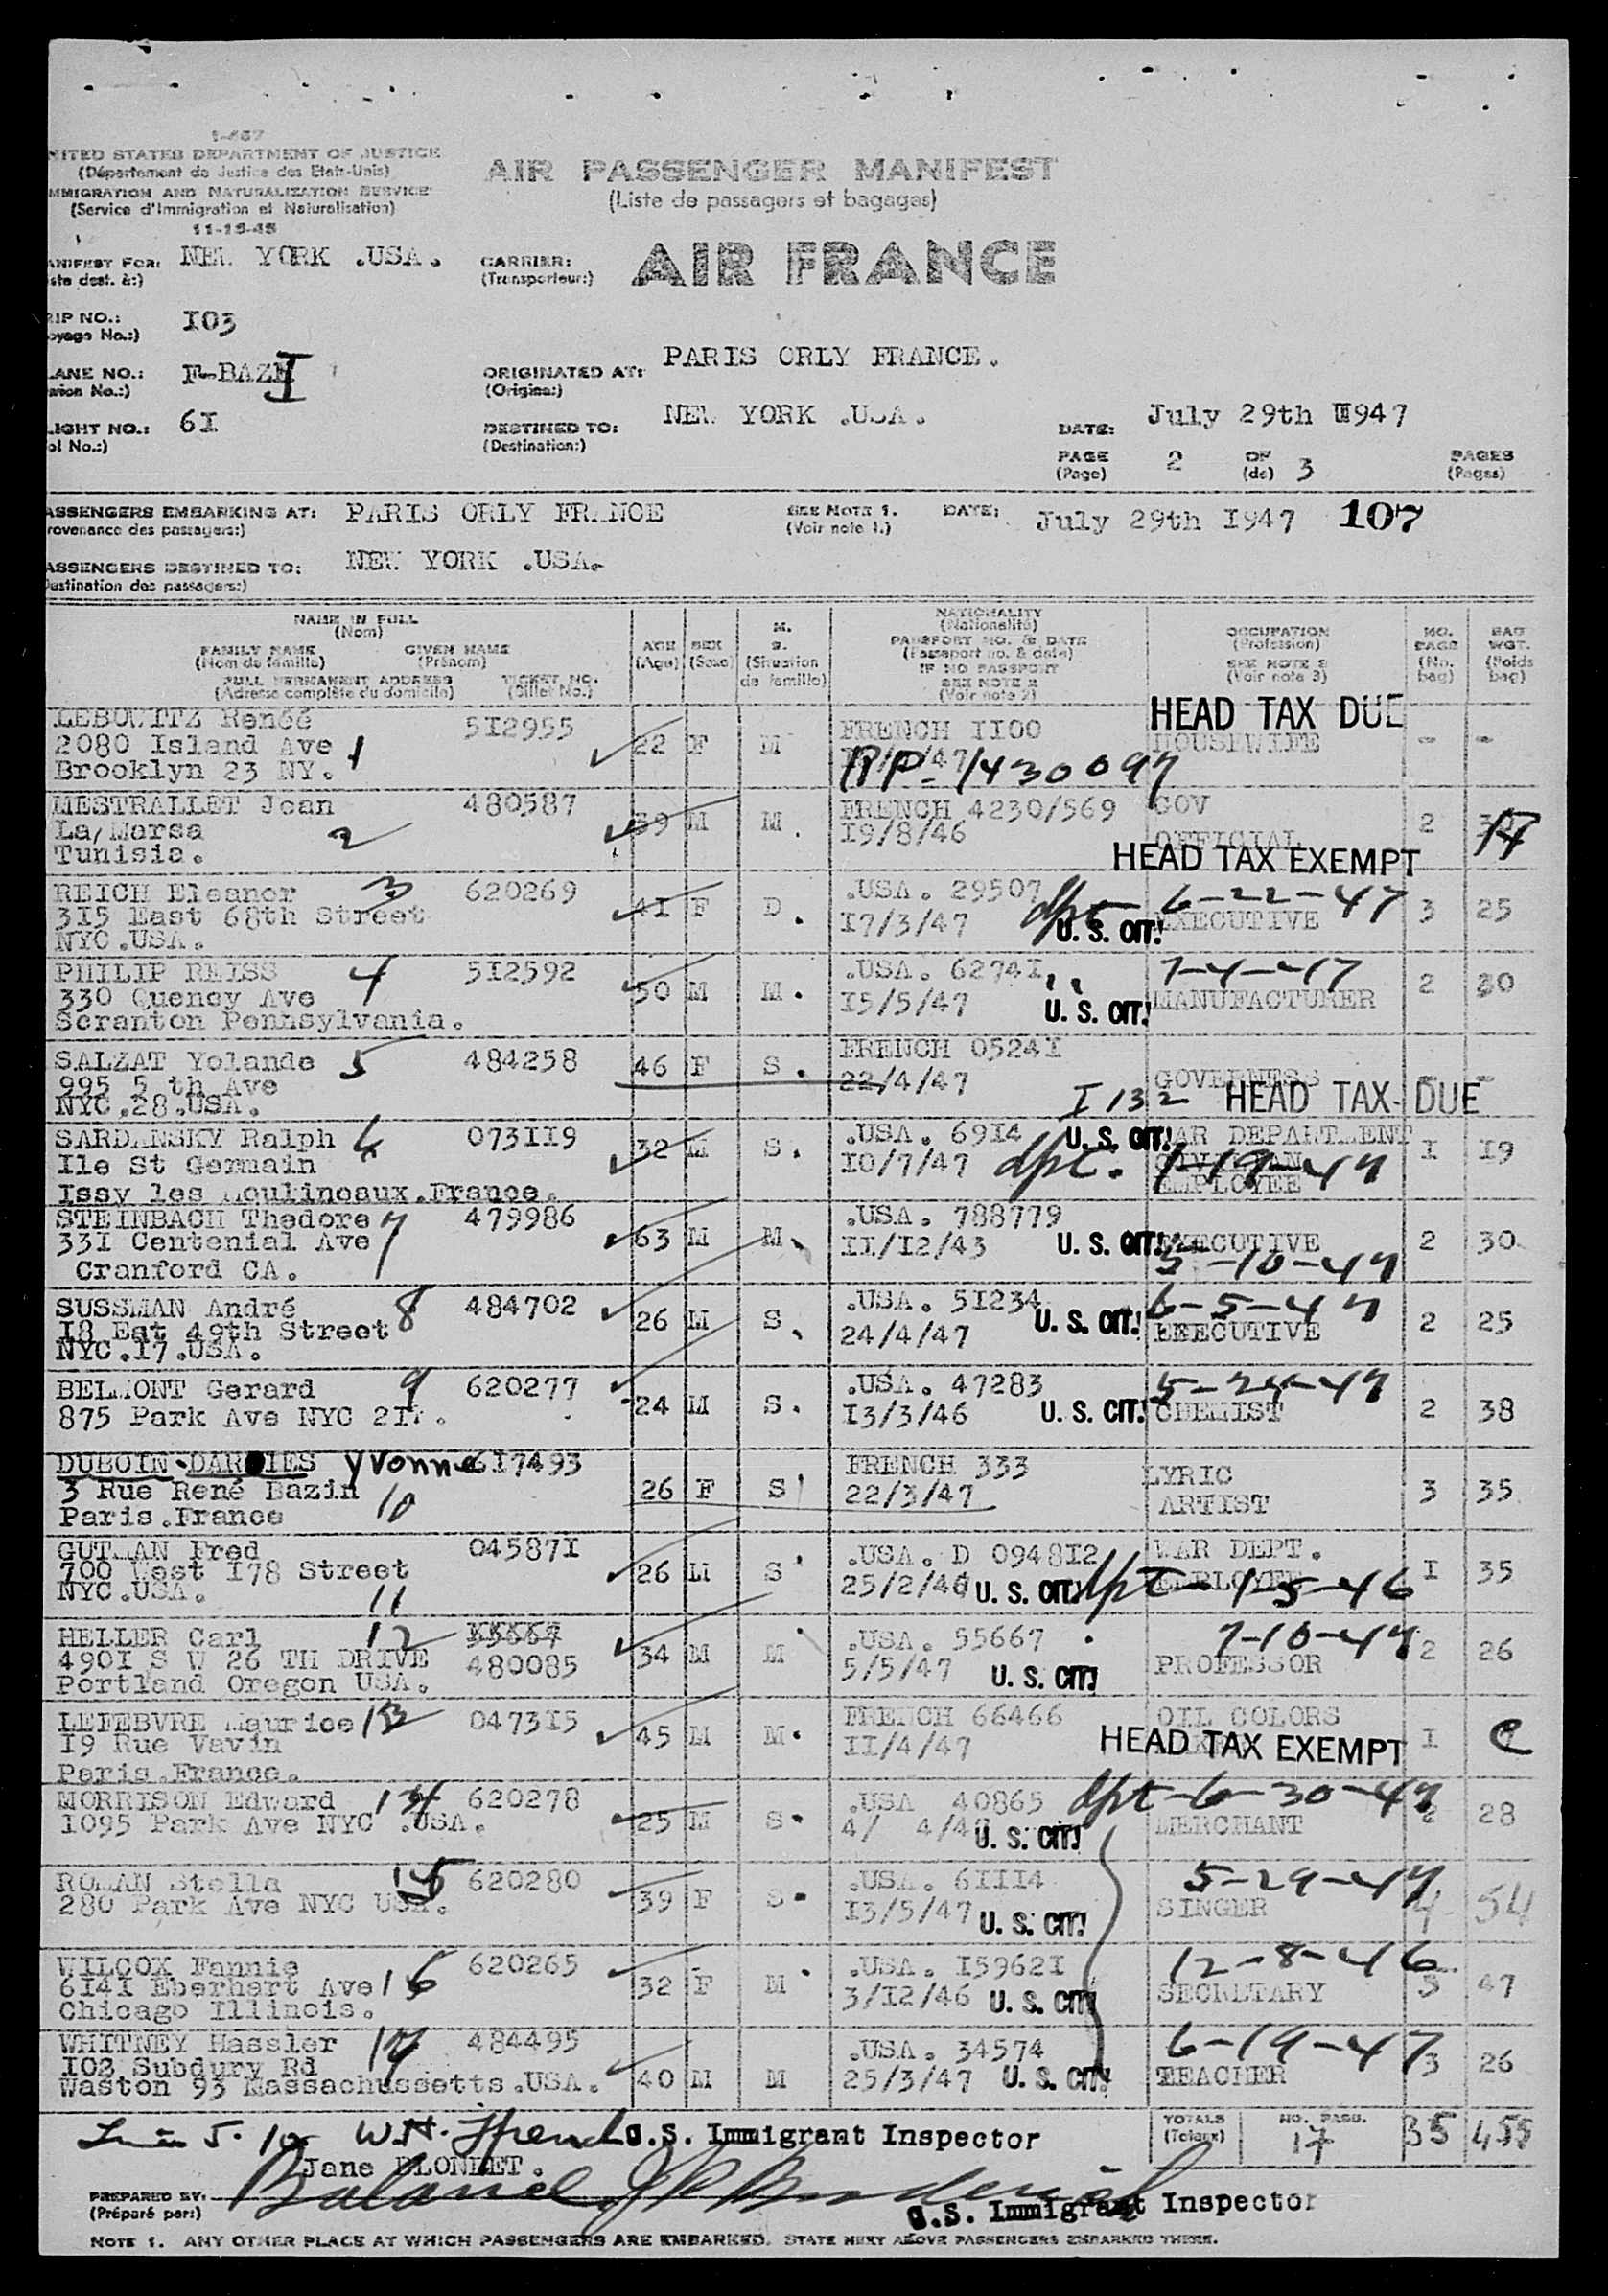 I-467
NITED STATES DEPARTMENT OF JUSTICE
(Département de Justice des Etats-Unis)
MMIGRATION AND NATURALIZATION SERVICE
(Service d'Immigration et Naturalisation)
11-15-45
AIR PASSENGER MANIFEST
(Liste de passagers et bagages)
ANIFEST FOR: NEW YORK .USA.
ste dest. à:)
CARRIER: AIR FRANCE
(Transporteur:)
RIP NO.: I03
oyage No.:)
LANE NO.: F-BAZ I
avion No.:)
ORIGINATED AT: PARIS ORLY FRANCE.
(Origine:)
LIGHT NO.: 6I
ol No.:)
DESTINED TO: NEW YORK .USA.
(Destination:)
DATE: July 29th I947
PAGE 2 OF 3 PAGES
(Page) (de) (Pages)
ASSENGERS EMBARKING AT: PARIS ORLY FRANCE SEE NOTE 1. DATE: July 29th I947 107
rovenance des passagers:) (Voir note 1.)
ASSENGERS DESTINED TO: NEW YORK .USA.
Destination des passagers:)
NAME IN FULL
(Nom)
FAMILY NAME GIVEN NAME
(Nom de famille) (Prénom)
FULL PERMANENT ADDRESS TICKET NO.
(Adresse complète du domicile) (Billet No.)
AGE SEX M. S.
(Age) (Sexe) (Situation de famille)
NATIONALITY
(Nationalité)
PASSPORT NO. & DATE
(Passeport no. & date)
IF NO PASSPORT
SEE NOTE 2
(Voir note 2)
OCCUPATION
(Profession)
SEE NOTE 3
(Voir note 3)
NO. BAGS
(No. bag)
BAG WGT.
(Poids bag)
LEBOWITZ Renéé 5I2955 22 F M FRENCH II00 HEAD TAX DUE
2080 Island Ave 1 HOUSEWIFE - -
Brooklyn 23 NY. PP- 1430097
MESTRALLET Jean 480587 39 M M. FRENCH 4230/569 GOV 2 17
La Marsa 2 I9/8/46 OFFICIAL
Tunisia. HEAD TAX EXEMPT
REICH Eleanor 3 620269 41 F D. .USA. 29507 dpt 6-22-47 3 25
3I5 East 68th Street I7/3/47 U. S. CIT. EXECUTIVE
NYC.USA.
PHILIP REISS 4 5I2592 50 M M. .USA. 6274I " 7-4-47 2 30
330 Quency Ave I5/5/47 U. S. CIT. MANUFACTURER
Scranton Pennsylvania.
SALZAT Yolande 5 484258 46 F S. FRENCH 0524I
995 5 th Ave 22/4/47 GOVERNESS - -
NYC.28.USA. I 132 HEAD TAX DUE
SARDANSKY Ralph 6 073II9 32 M S. .USA. 69I4 U. S. CIT. WAR DEPARTMENT I I9
Ile St Germain I0/7/47 dpt. 1-19-47 CIVILIAN
Issy les Moulineaux.France. EMPLOYEE
STEINBACH Thedore 7 479986 63 M M. .USA. 788779
33I Centenial Ave II/I2/43 U. S. CIT. EXECUTIVE 2 30
Cranford CA. 5-10-47
SUSSMAN André 8 484702 26 M S. .USA. 5I234 6-5-47 2 25
I8 Eat 49th Street 24/4/47 U. S. CIT. EXECUTIVE
NYC.I7.USA.
BELMONT Gerard 9 620277 24 M S. .USA. 47283 5-29-47
875 Park Ave NYC 2I. I3/3/46 U. S. CIT. CHEMIST 2 38
DUBOIN-DARDIES Yvonne 6I7493 26 F S FRENCH 333 LYRIC 3 35
3 Rue René Bazin 10 22/3/47 ARTIST
Paris.France
GUTMAN Fred 04587I 26 M S .USA. D 0948I2 WAR DEPT. I 35
700 West I78 Street 25/2/46 U. S. CIT. EMPLOYEE dpt-1-5-46
NYC.USA. 11
HELLER Carl 12 55667 34 M M .USA. 55667 7-10-47 2 26
490I S W 26 TH DRIVE 480085 5/5/47 U. S. CIT. PROFESSOR
Portland Oregon USA.
LEFEBVRE Maurice 13 0473I5 45 M M. FRENCH 66466 OIL COLORS I
I9 Rue Vavin II/4/47 HEAD TAX EXEMPT
Paris.France.
MORRISON Edward 14 620278 25 M S. .USA 40865 dpt-6-30-47 2 28
I095 Park Ave NYC .USA. 4/ 4/4 U. S. CIT. MERCHANT
ROMAN Stella 15 620280 39 F S. .USA. 6III4 5-29-47 4 54
280 Park Ave NYC USA. I3/5/47 U. S. CIT. SINGER
WILCOX Fannie 620265 32 F M .USA. I5962I 12-8-46 3 47
6I4I Eberhart Ave 16 3/I2/46 U. S. CIT SECRETARY
Chicago Illinois.
WHITNEY Hassler 17 484495 40 M M .USA. 34574 6-19-47 3 26
I02 Subdury Rd 25/3/47 U. S. CIT. TEACHER
Waston 93 Massachussetts.USA.
5.10 W.H. U.S. Immigrant Inspector TOTALS NO. PASG. 17 35 455
(Totaux)
Jane BLONDET.
PREPARED BY:
(Préparé par:) U.S. Immigrant Inspector
NOTE 1. ANY OTHER PLACE AT WHICH PASSENGERS ARE EMBARKED. STATE NEXT ABOVE PASSENGERS EMBARKED THERE.